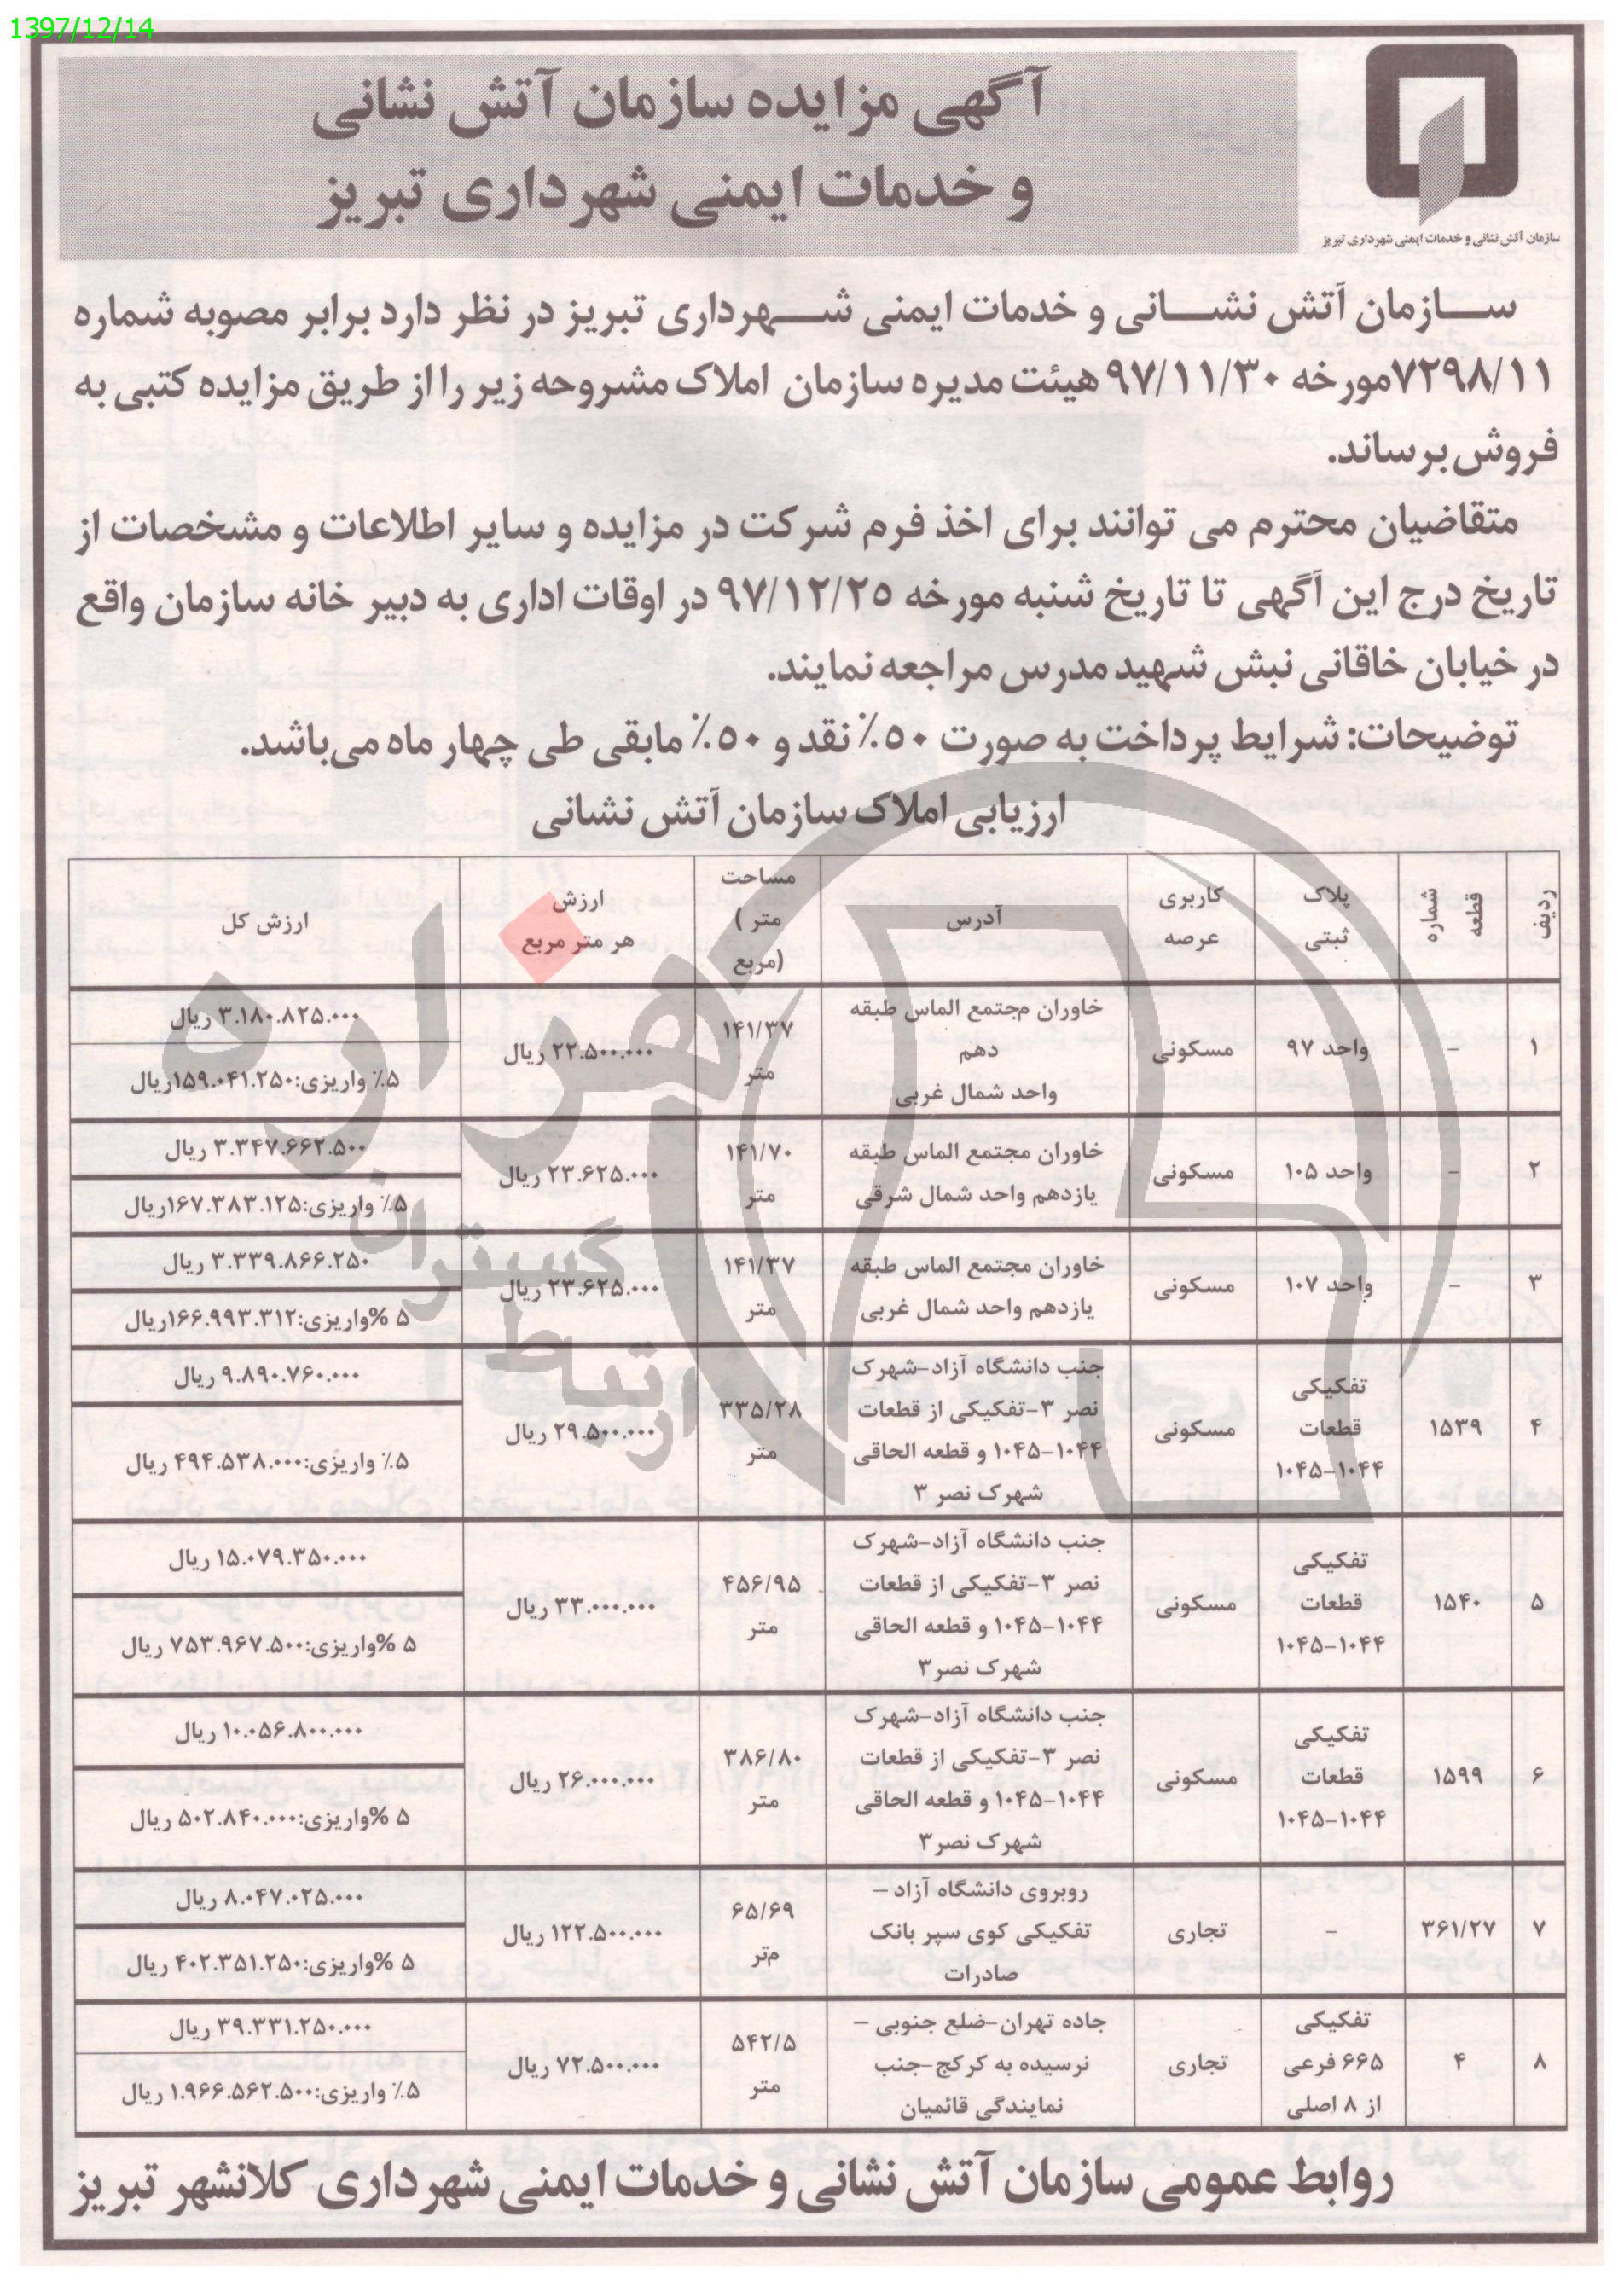 1397/12/14
آگهی مزایده سازمان آتش نشانی
و خدمات ایمنی شهرداری تبریز
سازمان آتش نشانی و خدمات ایمنی شهرداری تبریز
سازمان آتش نشانی و خدمات ایمنی شهرداری تبریز در نظر دارد برابر مصوبه شماره
۷۲۹۸/۱۱مورخه ۹۷/۱۱/۳۰ هیئت مدیره سازمان املاک مشروحه زیر را از طریق مزایده کتبی به
فروش برساند.
متقاضیان محترم می توانند برای اخذ فرم شرکت در مزایده و سایر اطلاعات و مشخصات از
تاریخ درج این آگهی تا تاریخ شنبه مورخه ۹۷/۱۲/۲۵ در اوقات اداری به دبیر خانه سازمان واقع
در خیابان خاقانی نبش شهید مدرس مراجعه نمایند.
توضیحات: شرایط پرداخت به صورت ۵۰٪ نقد و ۵۰٪ مابقی طی چهار ماه می‌باشد.
ارزیابی املاک سازمان آتش نشانی
ردیف شماره قطعه پلاک ثبتی کاربری عرصه آدرس مساحت (متر مربع) ارزش هر متر مربع ارزش کل
۱ – واحد ۹۷ مسکونی خاوران مجتمع الماس طبقه دهم واحد شمال غربی ۱۴۱/۳۷ متر ۲۲.۵۰۰.۰۰۰ ریال ۳.۱۸۰.۸۲۵.۰۰۰ ریال
۵٪ واریزی:۱۵۹.۰۴۱.۲۵۰ریال
۲ – واحد ۱۰۵ مسکونی خاوران مجتمع الماس طبقه یازدهم واحد شمال شرقی ۱۴۱/۷۰ متر ۲۳.۶۲۵.۰۰۰ ریال ۳.۳۴۷.۶۶۲.۵۰۰ ریال
۵٪ واریزی:۱۶۷.۳۸۳.۱۲۵ریال
۳ – واحد ۱۰۷ مسکونی خاوران مجتمع الماس طبقه یازدهم واحد شمال غربی ۱۴۱/۳۷ متر ۲۳.۶۲۵.۰۰۰ ریال ۳.۳۳۹.۸۶۶.۲۵۰ ریال
۵ %واریزی:۱۶۶.۹۹۳.۳۱۲ریال
۴ ۱۵۳۹ تفکیکی قطعات ۱۰۴۵-۱۰۴۴ مسکونی جنب دانشگاه آزاد-شهرک نصر ۳-تفکیکی از قطعات ۱۰۴۵-۱۰۴۴ و قطعه الحاقی شهرک نصر ۳ ۳۳۵/۲۸ متر ۲۹.۵۰۰.۰۰۰ ریال ۹.۸۹۰.۷۶۰.۰۰۰ ریال
۵٪ واریزی:۴۹۴.۵۳۸.۰۰۰ ریال
۵ ۱۵۴۰ تفکیکی قطعات ۱۰۴۵-۱۰۴۴ مسکونی جنب دانشگاه آزاد-شهرک نصر ۳-تفکیکی از قطعات ۱۰۴۵-۱۰۴۴ و قطعه الحاقی شهرک نصر۳ ۴۵۶/۹۵ متر ۳۳.۰۰۰.۰۰۰ ریال ۱۵.۰۷۹.۳۵۰.۰۰۰ ریال
۵ %واریزی:۷۵۳.۹۶۷.۵۰۰ ریال
۶ ۱۵۹۹ تفکیکی قطعات ۱۰۴۵-۱۰۴۴ مسکونی جنب دانشگاه آزاد-شهرک نصر ۳-تفکیکی از قطعات ۱۰۴۵-۱۰۴۴ و قطعه الحاقی شهرک نصر۳ ۳۸۶/۸۰ متر ۲۶.۰۰۰.۰۰۰ ریال ۱۰.۰۵۶.۸۰۰.۰۰۰ ریال
۵ %واریزی:۵۰۲.۸۴۰.۰۰۰ ریال
۷ ۳۶۱/۲۷ – تجاری روبروی دانشگاه آزاد – تفکیکی کوی سپر بانک صادرات ۶۵/۶۹ متر ۱۲۲.۵۰۰.۰۰۰ ریال ۸.۰۴۷.۰۲۵.۰۰۰ ریال
۵ %واریزی:۴۰۲.۳۵۱.۲۵۰ ریال
۸ ۴ تفکیکی ۶۶۵ فرعی از ۸ اصلی تجاری جاده تهران-ضلع جنوبی – نرسیده به کرکج-جنب نمایندگی قائمیان ۵۴۲/۵ متر ۷۲.۵۰۰.۰۰۰ ریال ۳۹.۳۳۱.۲۵۰.۰۰۰ ریال
۵٪ واریزی:۱.۹۶۶.۵۶۲.۵۰۰ ریال
روابط عمومی سازمان آتش نشانی و خدمات ایمنی شهرداری کلانشهر تبریز
هزاره
گستران
ارتباط